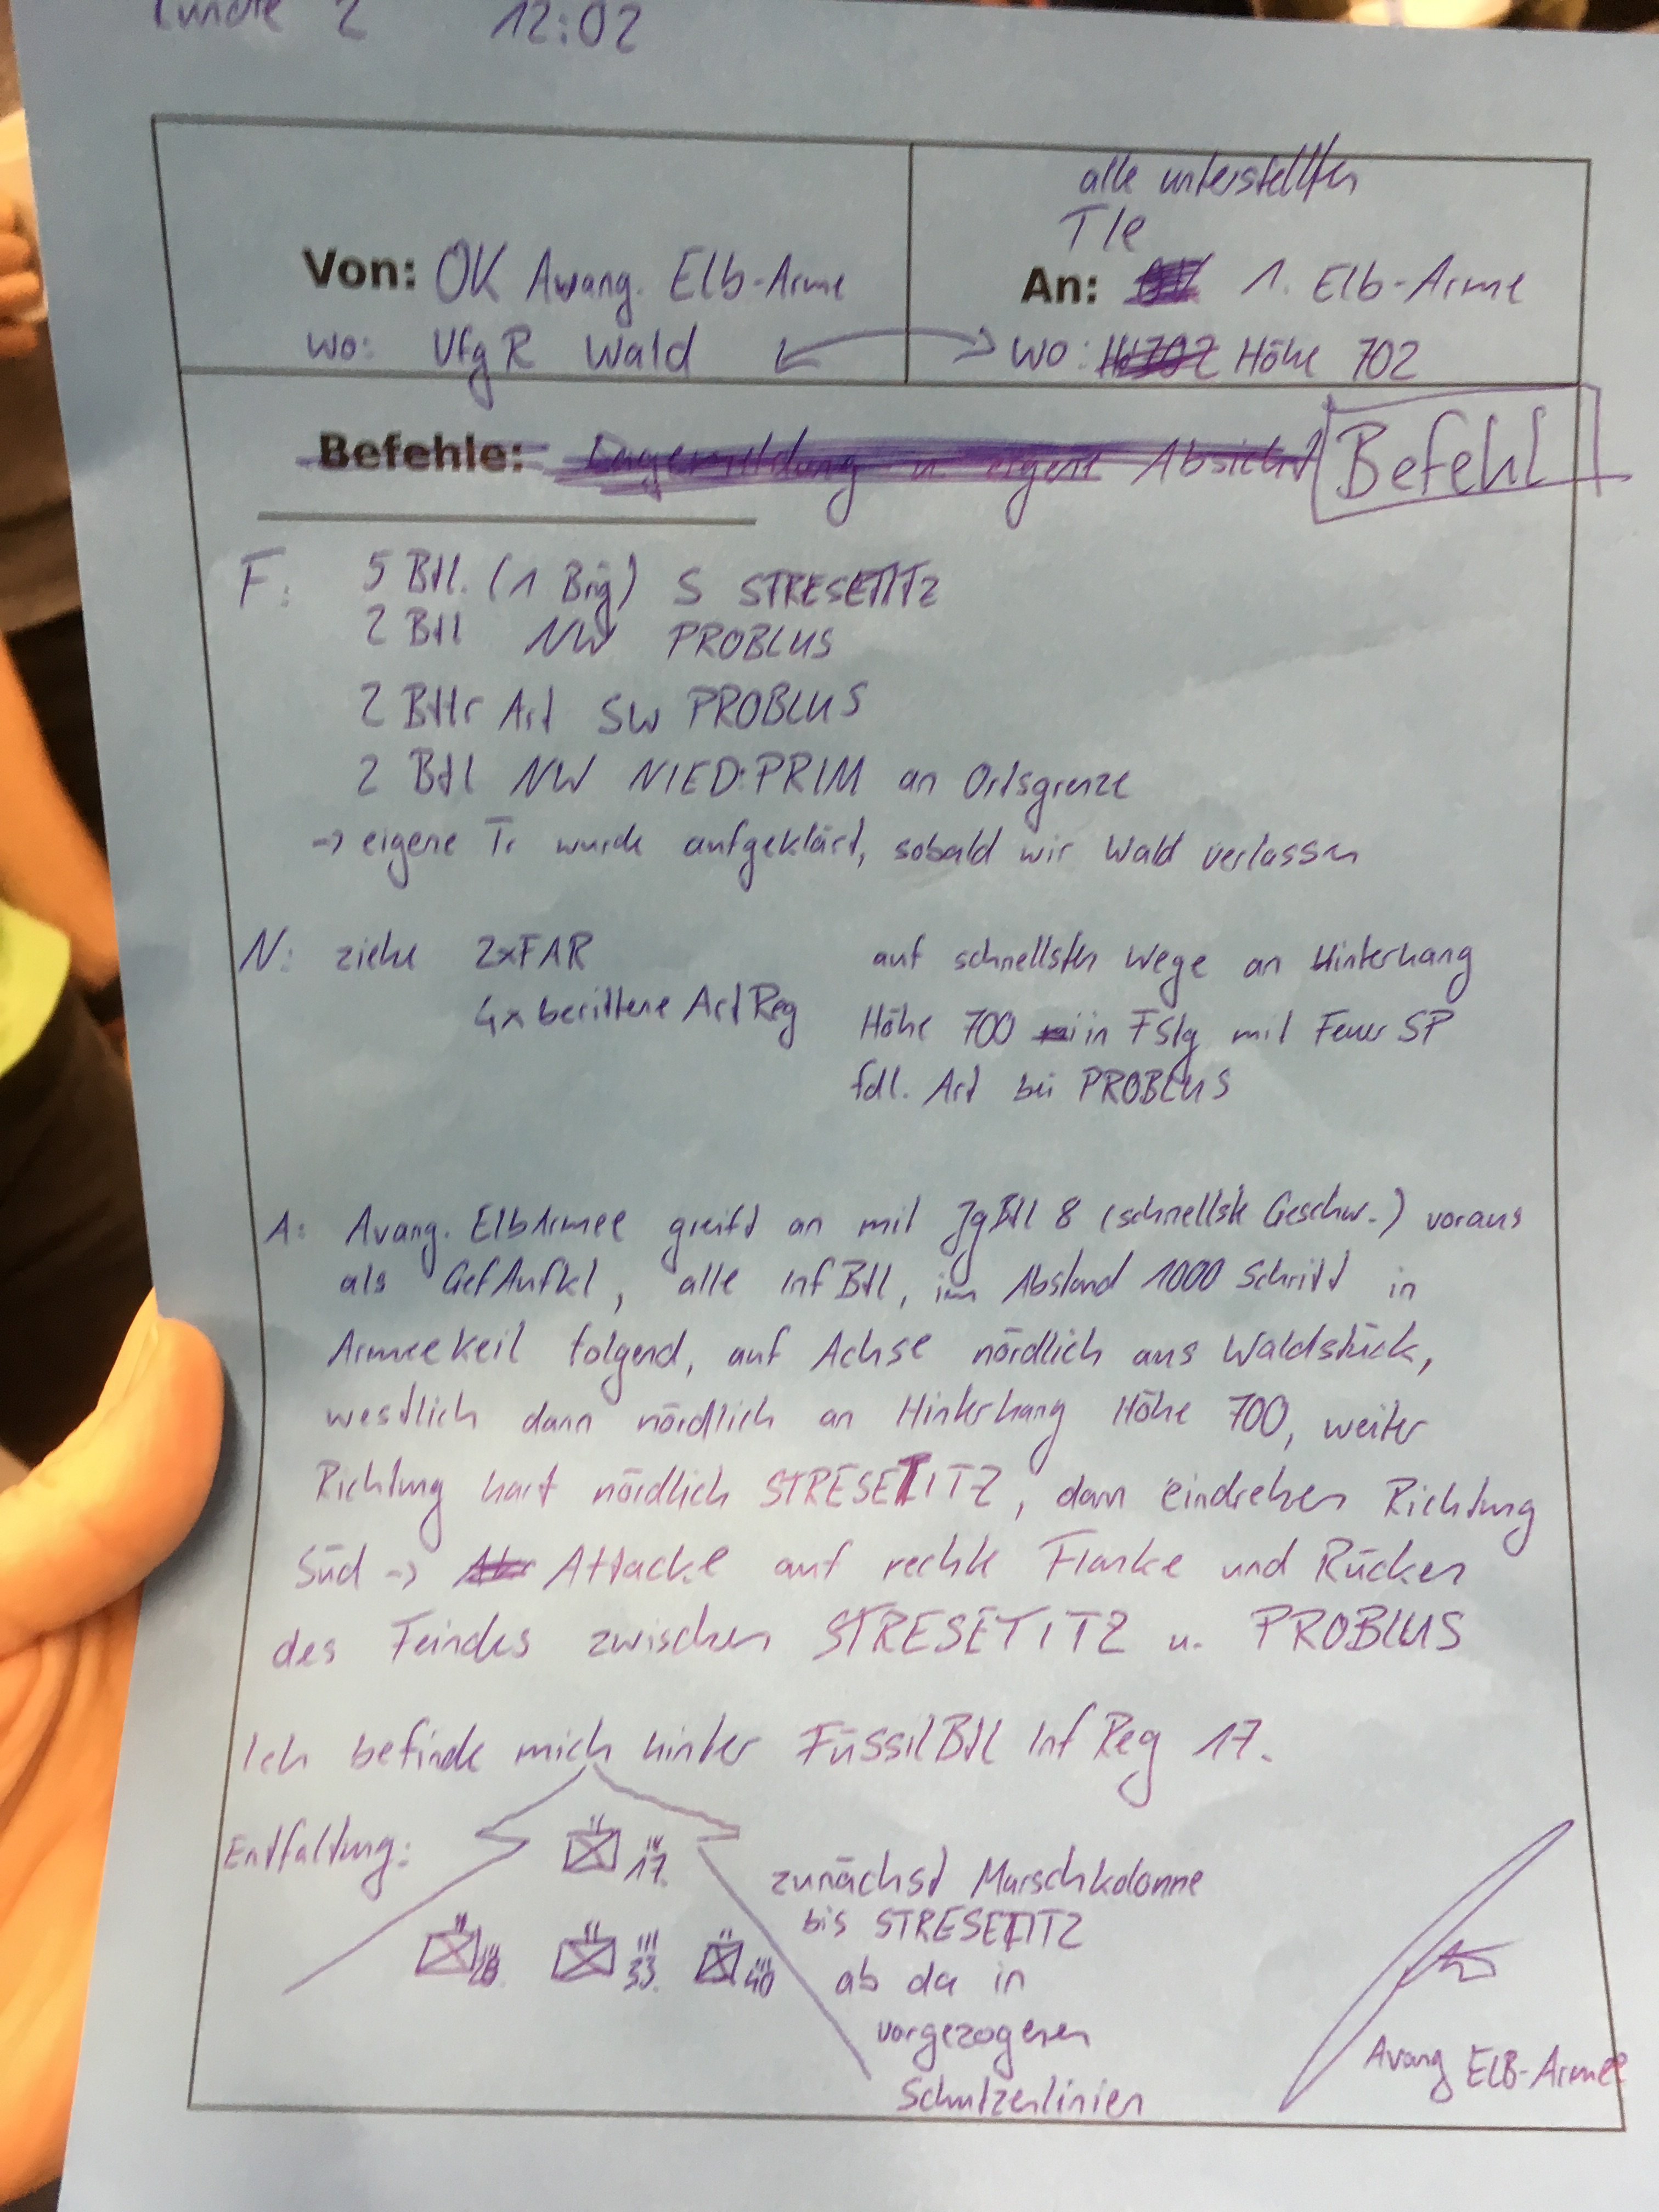 2 12:02
alle unterstellten
Tle
Von: OK Avang. Elb-Arme
An: 1. Elb-Arme
wo: VfgR Wald
wo: Höhe 702
Befehle: Lagemeldung u. eigene Absicht
Befehl
F: 5 Btl. (1 Brig) S STRESETITZ
2 Btl NW PROBLUS
2 Bttr Art SW PROBLUS
2 Btl NW NIED.PRIM an Ortsgrenze
-> eigene Tr wurde aufgeklärt, sobald wir Wald verlassen
N: ziehe 2xFAR auf schnellsten Wege an Hinterhang
4x berittene Art Reg Höhe 700 in FStg mit Feuer SP
fdl. Art bei PROBLUS
A: Avang. ElbArmee greift an mit JgBtl 8 (schnellste Geschw.) voraus
als GefAufkl, alle InfBtl, im Abstand 1000 Schritt in
Armeekeil folgend, auf Achse nördlich aus Waldstück,
westlich dann nördlich an Hinterhang Höhe 700, weiter
Richtung hart nördlich STRESETITZ, dann eindrehen Richtung
Süd -> Attacke auf rechte Flanke und Rücken
des Feindes zwischen STRESETITZ u. PROBLUS
Ich befinde mich hinter FüssilBtl Inf Reg 17.
Entfaltung:
17.
28. 33. 40
zunächst Marschkolonne
bis STRESETITZ
ab da in
vorgezogenen
Schützenlinien
Avang ELB-Armee